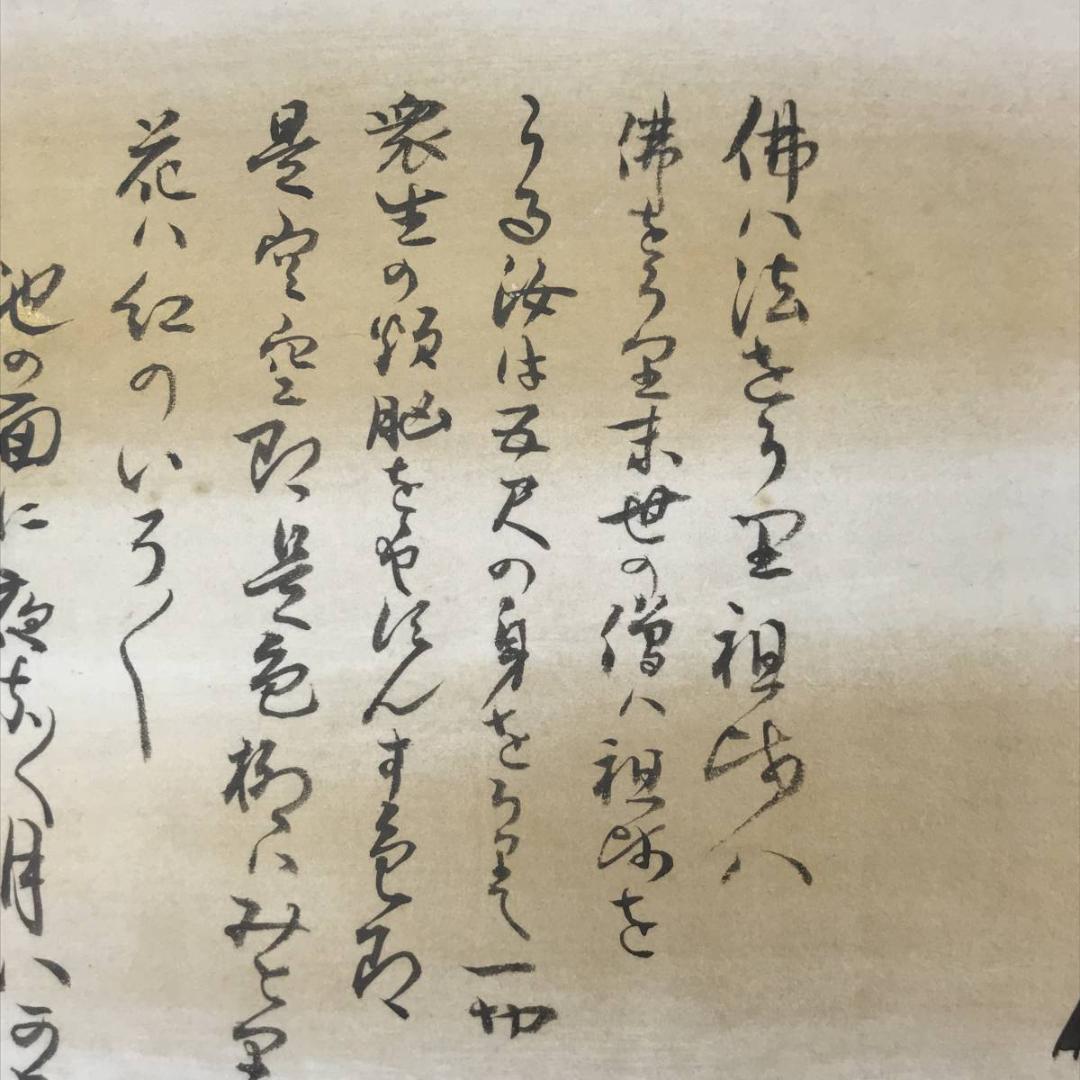 佛ハ法をうり祖師ハ
佛をうり末世の僧ハ祖師を
うる汝は五尺の身をうりて一切
衆生の煩脳をやすんす色即
是空空即是色柳ハみとり
花ハ紅のいろ〱
池の面に夜な〱月ハか